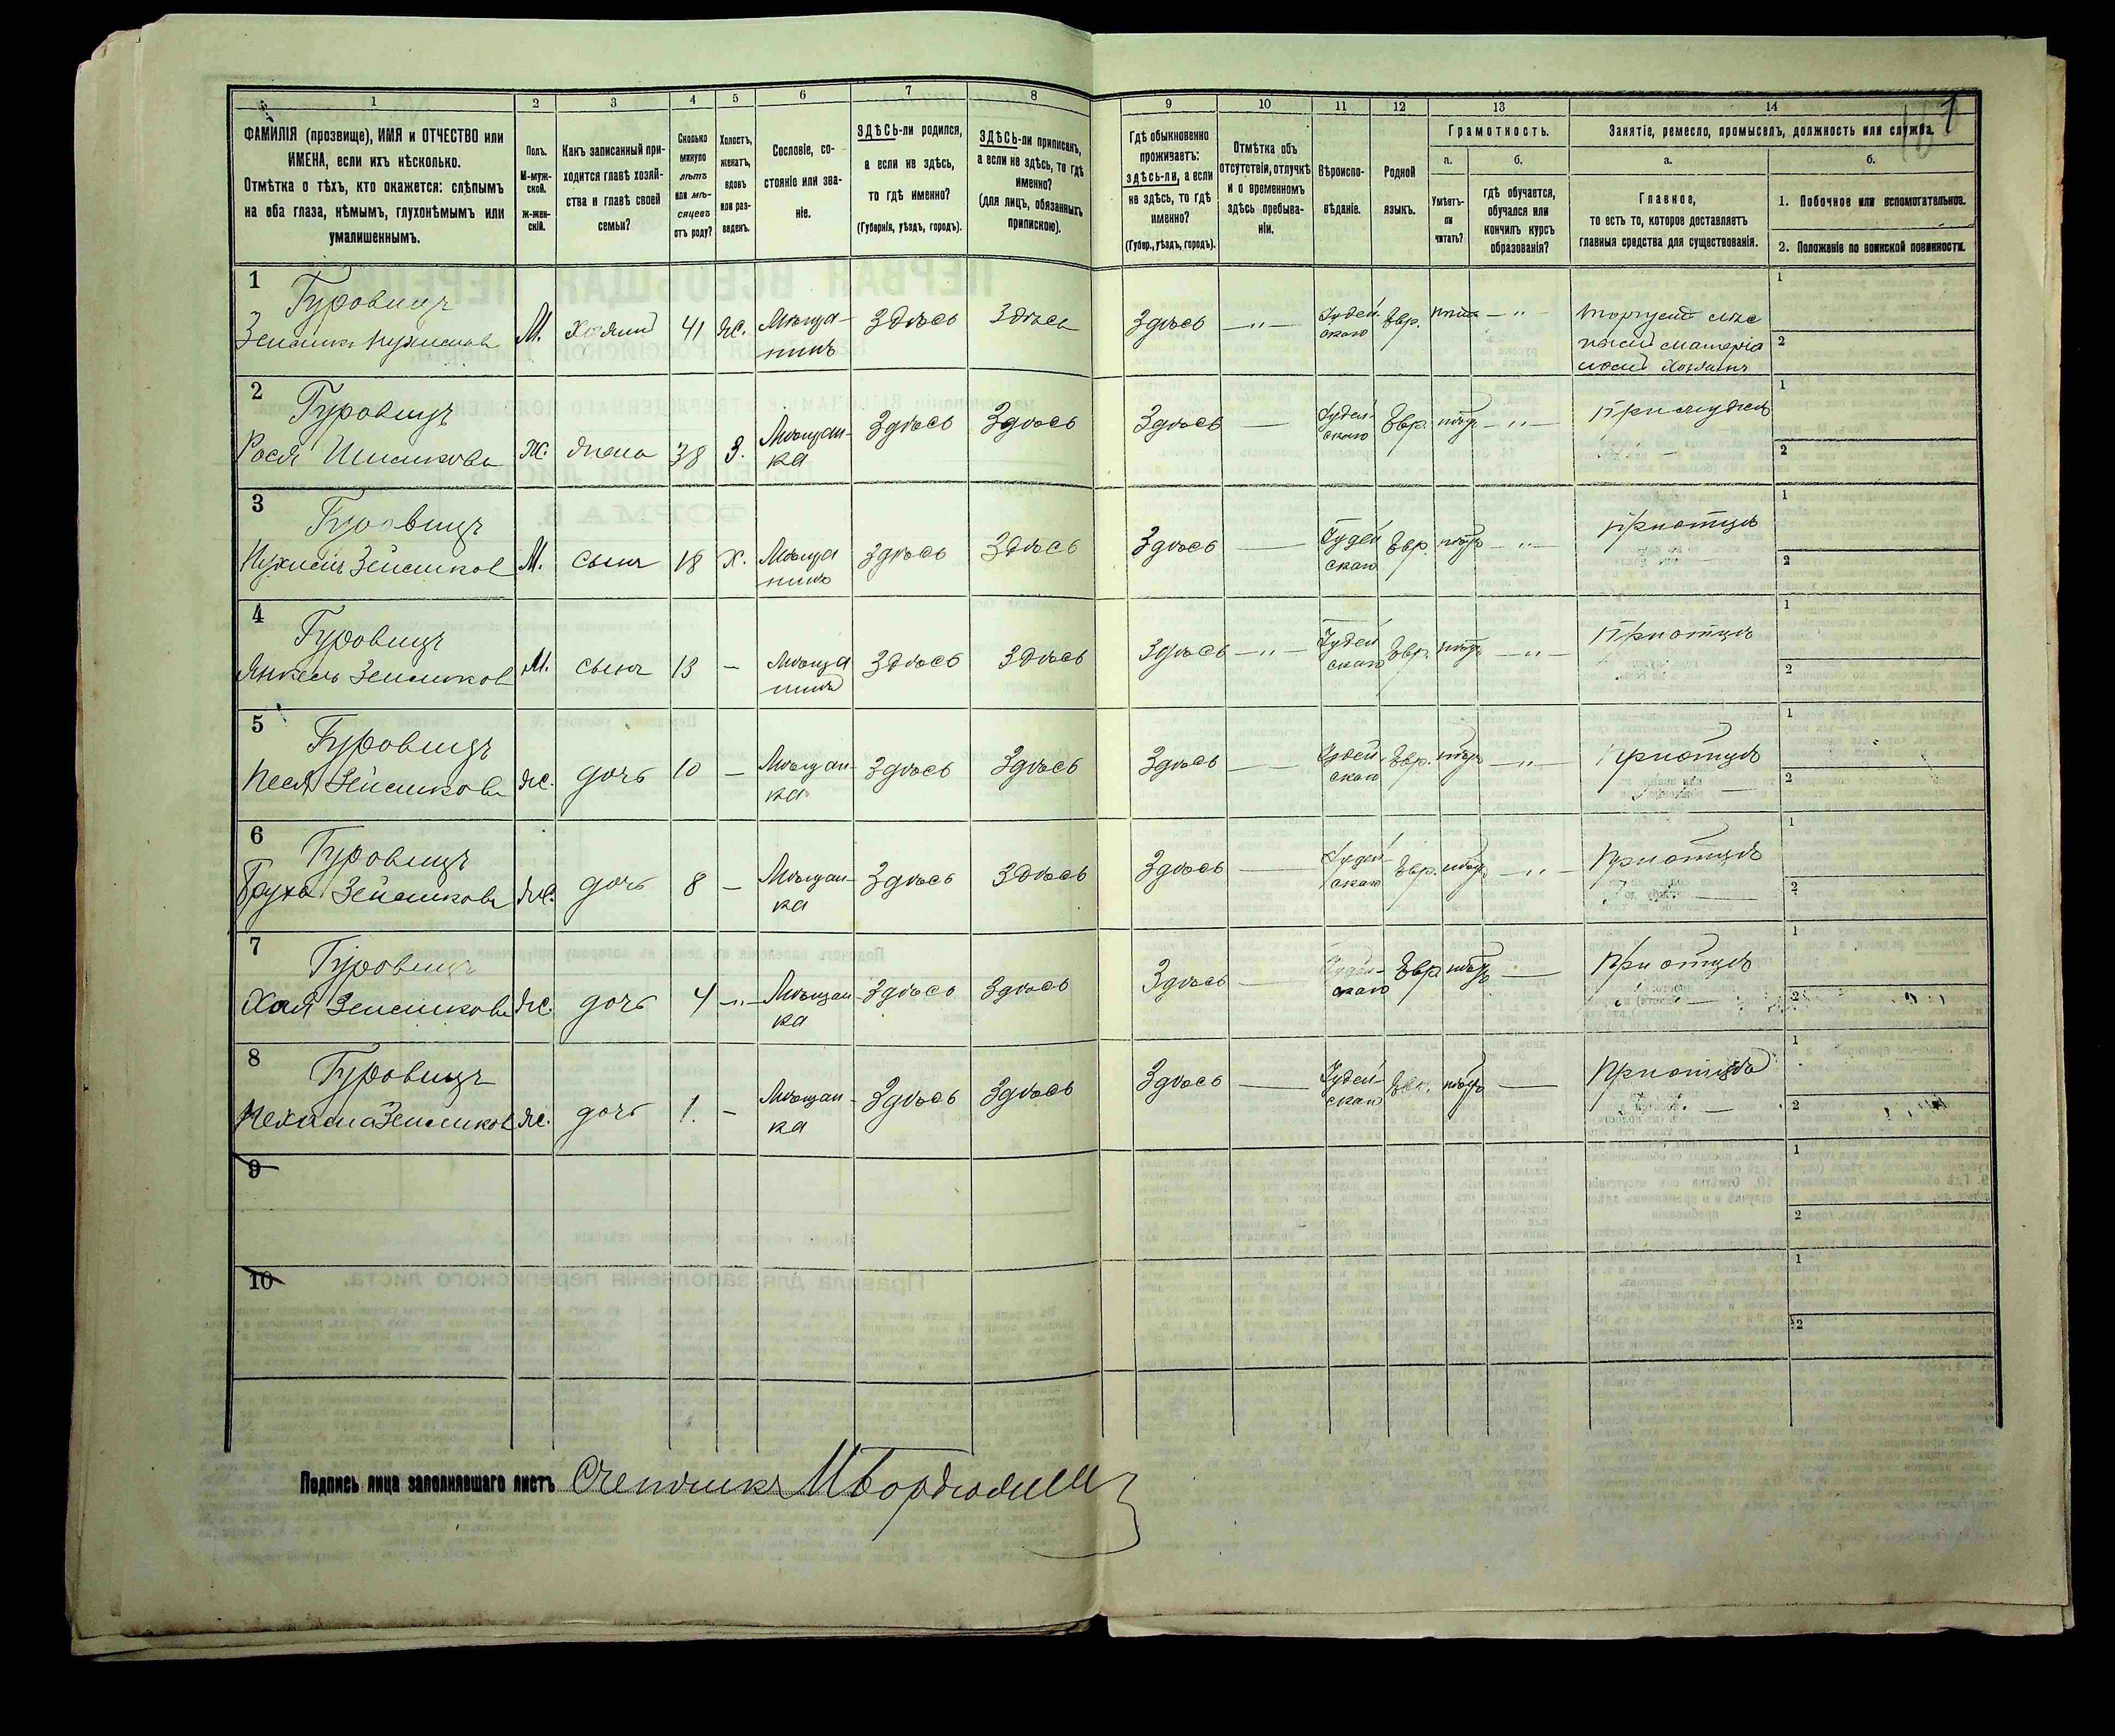 1 2 3 4 5 6 7 8 9 10 11 12 13 14
ФАМИЛІЯ (прозвище), ИМЯ и ОТЧЕСТВО или
ИМЕНА, если ихъ нѣсколько.
Отмѣтка о тѣхъ, кто окажется: слѣпымъ
на оба глаза, нѣмымъ, глухонѣмымъ или
умалишеннымъ.
Полъ.
М-муж-
ской.
Ж-жен-
скій.
Какъ записанный при-
ходится главѣ хозяй-
ства и главѣ своей
семьи?
Сколько
минуло
лѣтъ
или мѣ-
сяцевъ
отъ роду?
Холостъ,
женатъ,
вдовъ
или раз-
веденъ.
Сословіе, со-
стояніе или зва-
ніе.
ЗДѢСЬ-ли родился,
а если не здѣсь,
то гдѣ именно?
(Губернія, уѣздъ, городъ).
ЗДѢСЬ-ли приписанъ,
а если не здѣсь, то гдѣ
именно?
(для лицъ, обязанныхъ
припискою).
Гдѣ обыкновенно
проживаетъ:
здѣсь-ли, а если
не здѣсь, то гдѣ
именно?
(Губер., уѣздъ, городъ).
Отмѣтка объ
отсутствіи, отлучкѣ
и о временномъ
здѣсь пребыва-
ніи.
Вѣроиспо-
вѣданіе.
Родной
языкъ.
Грамотность.
а.
Умѣетъ-
ли
читать?
б.
гдѣ обучается,
обучался или
кончилъ курсъ
образованія?
Занятіе, ремесло, промыселъ, должность или служба.
а.
Главное,
то есть то, которое доставляетъ
главныя средства для существованія.
б.
1. Побочное или вспомогательное.
2. Положеніе по воинской повинности.
1
Гуровицъ
М. Хозяинъ 41 Ж. Мѣща-
нинъ
Здѣсь Здѣсь Здѣсь —„— Іудей-
скаго
Евр. —„—
Хозяинъ
1
2
2
Гуровицъ
Ж. Жена 38 З. Мѣщан-
ка
Здѣсь Здѣсь Здѣсь — Іудей-
скаго
Евр. —„— При мужѣ
1
2
3
Гуровицъ
М. Сынъ 18 Х. Мѣща
нинъ
Здѣсь Здѣсь Здѣсь — Іудей
скаго
Евр. —„— При отцѣ
1
2
4
Гуровицъ
Янкель
М. Сынъ 13 — Мѣща
нинъ
Здѣсь Здѣсь Здѣсь —„— Іудей
скаго
Евр. —„— При отцѣ
1
2
5
Гуровицъ
Песя
Ж. дочь 10 — Мѣщан-
ка
Здѣсь Здѣсь Здѣсь — Іудей
скаго
Евр. —„— При отцѣ
1
2
6
Гуровицъ
Бруха
Ж. дочь 8 — Мѣщан-
ка
Здѣсь Здѣсь Здѣсь — Іудей-
скаго
Евр. —„— При отцѣ
1
2
7
Гуровицъ
Хая
Ж. дочь 4 —„— Мѣщан-
ка
Здѣсь Здѣсь Здѣсь — Іудей-
скаго
Евр. — При отцѣ
1
2
8
Гуровицъ
Нехама
Ж. дочь 1. — Мѣщан-
ка
Здѣсь Здѣсь Здѣсь — Іудей-
скаго
Евр. — При отцѣ
1
2
9
1
2
10
1
2
Подпись лица заполнявшаго листъ Счетчикъ